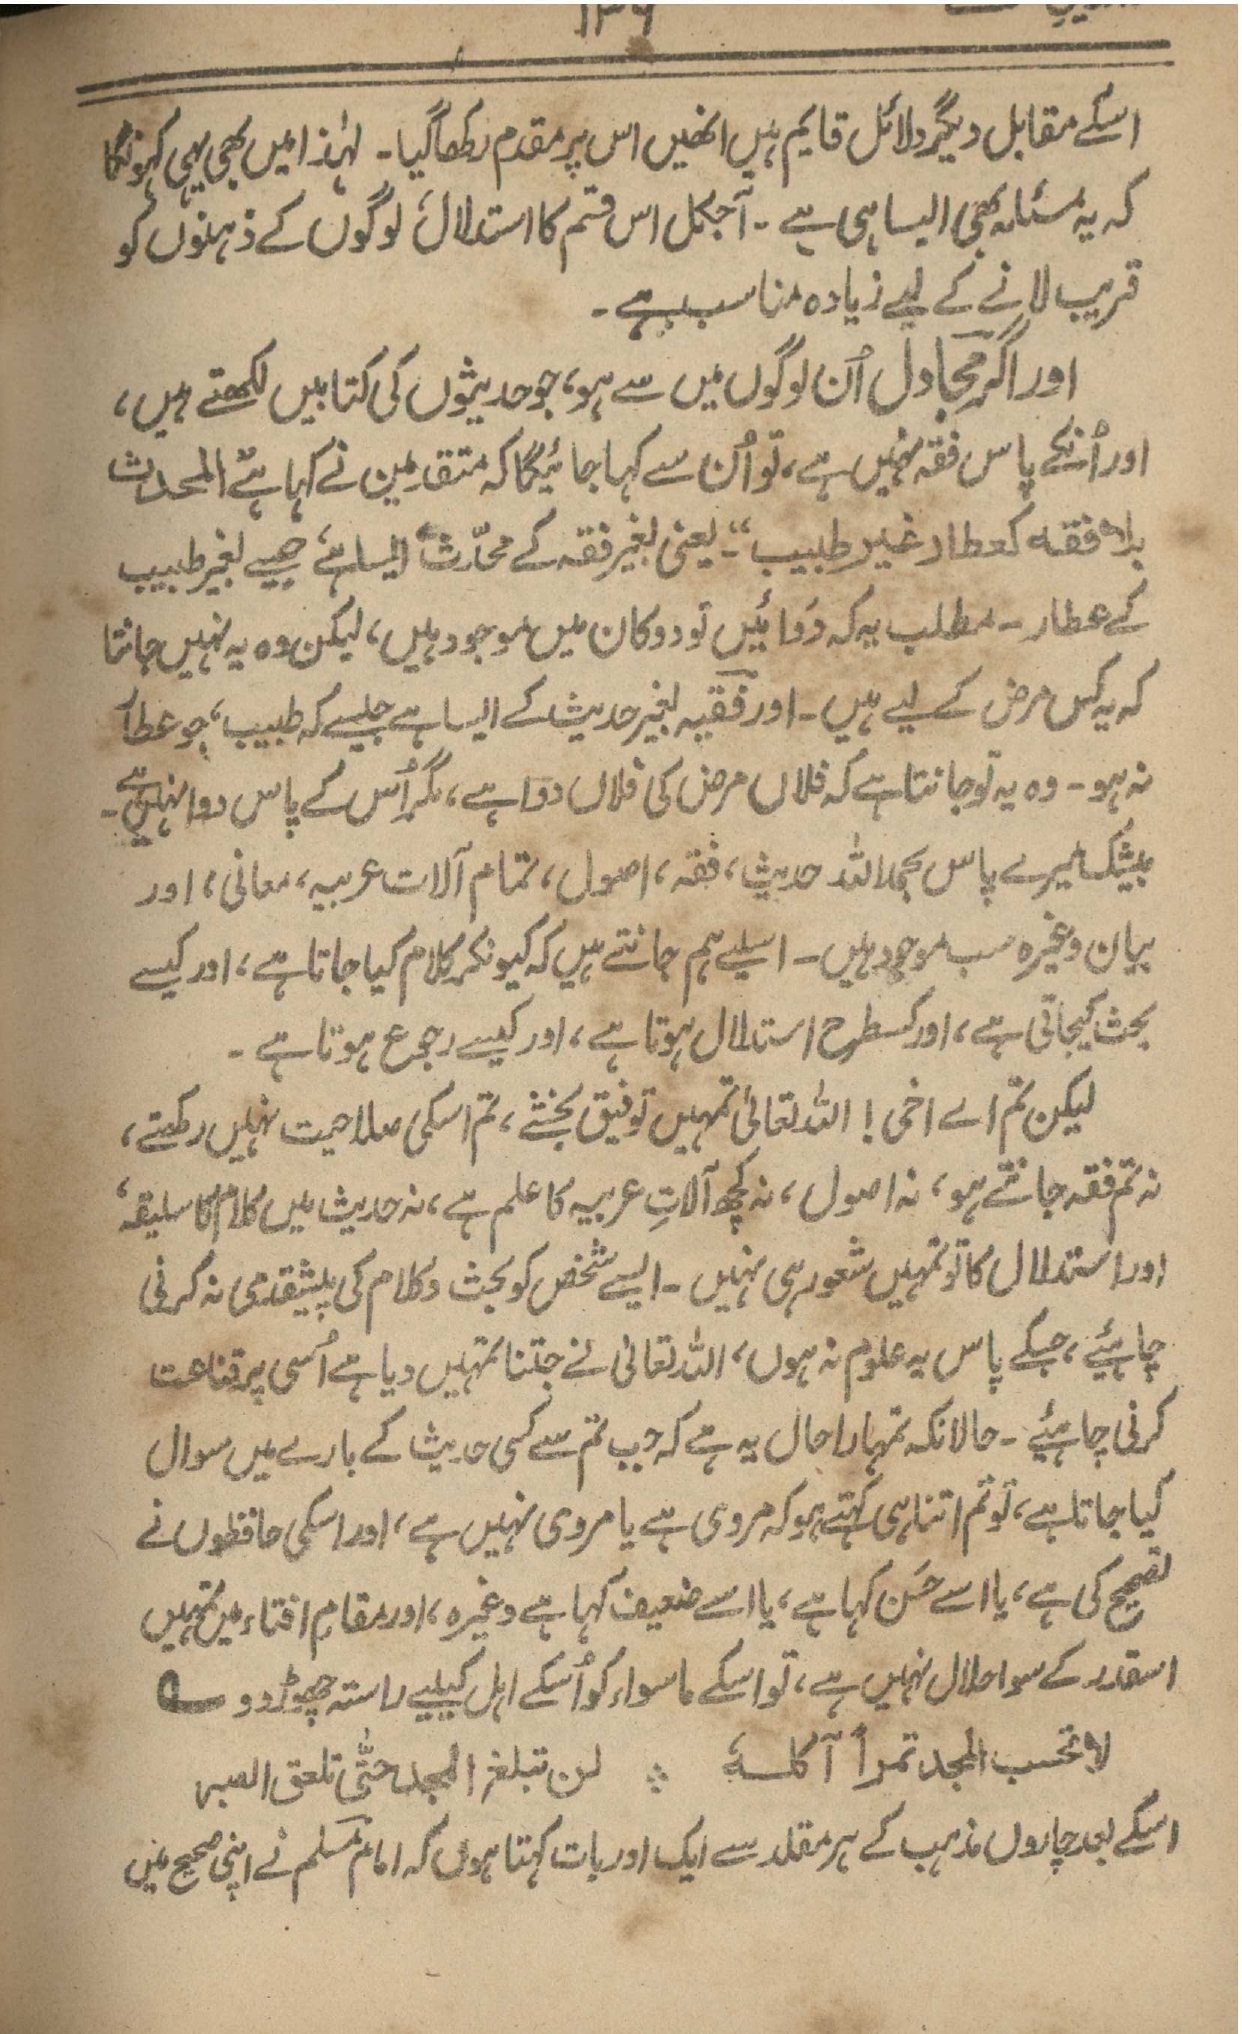 ۱۳۶
اسکے مقابل دیگر دلائل قایم ہیں انھیں اس پر مقدم رکھا گیا۔ لہٰذا میں بھی یہی کہونگا
کہ یہ مسئلہ بھی ایسا ہی ہے ۔ آجکل اس قسم کا استدلال، لوگوں کے ذہنوں کو
قریب لانے کے لیے زیادہ مناسب ہے ۔
اور اگر مجادل اُن لوگوں میں سے ہو، جو حدیثوں کی کتابیں لکھتے ہیں،
اور اُنکے پاس فقہ نہیں ہے، تو اُن سے کہا جائیگا کہ متقدمین نے کہا ہے المحدث
بلا فقه کعطار غیر طبیب“۔ یعنی بغیر فقہ کے محدّث ایسا ہے، جیسے بغیر طبیب
کے عطار ۔ مطلب یہ کہ دَوائیں تو دوکان میں موجود ہیں، لیکن وہ یہ نہیں جانتا
کہ یہ کس مرض کے لیے ہیں ۔ اور فقیہ بغیر حدیث کے ایسا ہے جیسے کہ طبیب، جو عطار
نہ ہو ۔ وہ یہ تو جانتا ہے کہ فلاں مرض کی فلاں دوا ہے، مگر اُس کے پاس دوا نہیں ہے ۔
بیشک میرے پاس بحمد اللہ حدیث، فقہ، اصول، تمام آلات عربیہ، معانی، اور
بیان وغیرہ سب موجود ہیں ۔ اسلیے ہم جانتے ہیں کہ کیونکر کلام کیا جاتا ہے، اور کیسے
بحث کیجاتی ہے، اور کسطرح استدلال ہوتا ہے، اور کیسے رجوع ہوتا ہے ۔
لیکن تم اے اخی ! اللہ تعالیٰ تمہیں توفیق بخشے، تم اسکی صلاحیت نہیں رکھتے،
نہ تم فقہ جانتے ہو، نہ اصول، نہ کچھ آلاتِ عربیہ کا علم ہے، نہ حدیث میں کلام کا سلیقہ،
اور استدلال کا تو تمہیں شعور ہی نہیں ۔ ایسے شخص کو بحث و کلام کی پیشقدمی نہ کرنی
چاہیئے، جسکے پاس یہ علوم نہ ہوں، اللہ تعالیٰ نے جتنا تمہیں دیا ہے اُسی پر قناعت
کرنی چاہیئے ۔ حالانکہ تمہارا حال یہ ہے کہ جب تم سے کسی حدیث کے بارے میں سوال
کیا جاتا ہے، تو تم اتنا ہی کہتے ہو کہ مروی ہے یا مروی نہیں ہے، اور اسکی حافظوں نے
تصحیح کی ہے، یا اسے حَسَن کہا ہے، یا اسے ضعیف کہا ہے وغیرہ، اور مقامِ افتاء میں تمہیں
اسقدر کے سوا حلال نہیں ہے، تو اسکے ماسواء کو اُسکے اہل کیلیے راستہ چھوڑ دو ؎
لا تحسب المجد تمراً آکلہٗ ؞ لن تبلغ المجد حتّٰی تلعق الصبر
اسکے بعد چاروں مذہب کے ہر مقلد سے ایک اور بات کہتا ہوں کہ امام مسلم نے اپنی صحیح میں